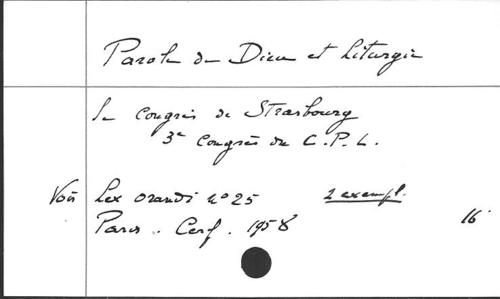 Parole de Dieu et Liturgie
Le Congrès de Strasbourg
3e Congrès du C.P.L.
Voir Lex orandi nº 25 2 exempl.
Paris. Cerf. 1958 16